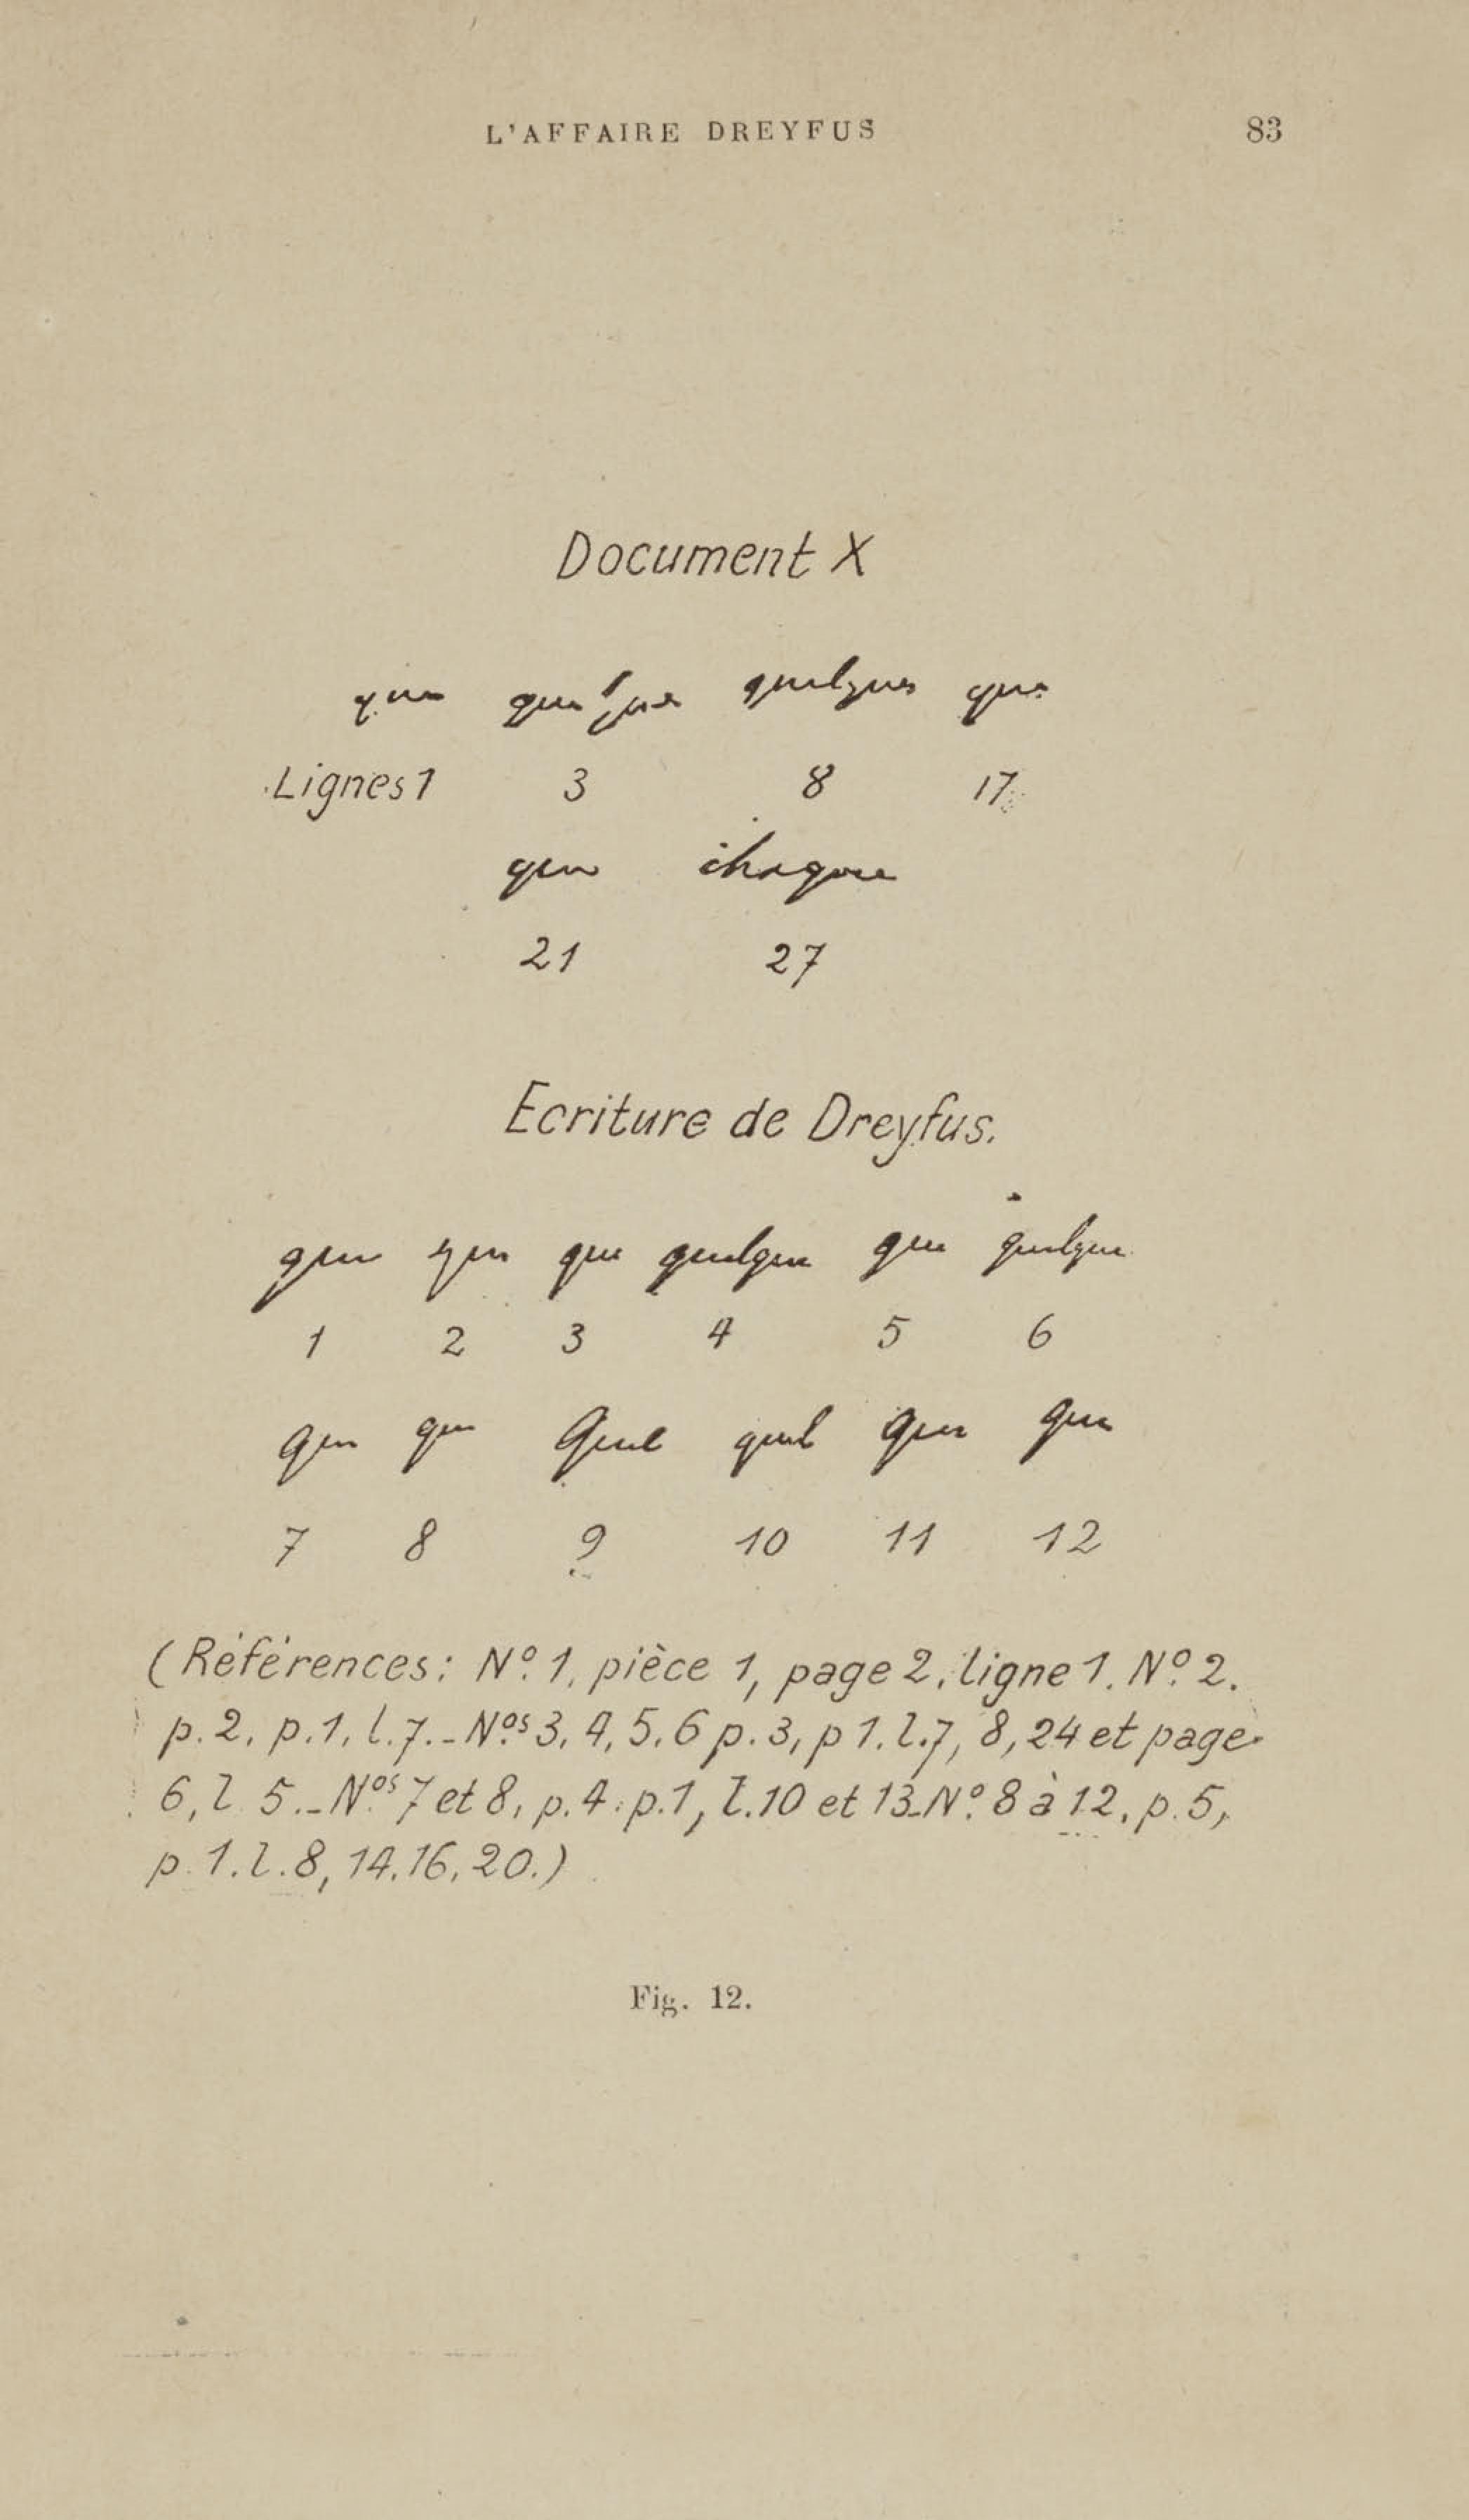 L'AFFAIRE DREYFUS 83
Document X
que quelque quelques que
Lignes 1 3 8 17
que chaque
21 27
Ecriture de Dreyfus.
que que que quelque que quelque
1 2 3 4 5 6
que que Quel quel que que
7 8 9 10 11 12
(Références: Nº. 1, pièce 1, page 2, ligne 1. Nº. 2.
p. 2, p. 1, l. 7._Nºs 3, 4, 5, 6 p. 3, p 1. l. 7, 8, 24 et page
6, l. 5._Nºs 7 et 8, p. 4. p. 1, l. 10 et 13_Nº. 8 à 12, p. 5,
p. 1. l. 8, 14. 16, 20.)
Fig. 12.